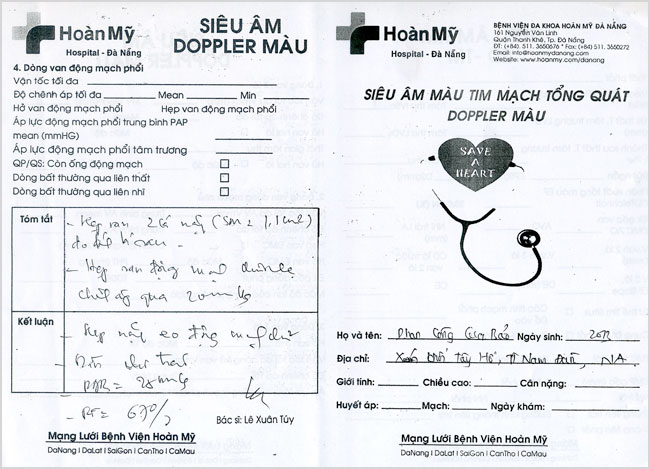 Hoàn Mỹ
Hospital - Đà Nẵng
SIÊU ÂM
DOPPLER MÀU
4. Dòng van động mạch phổi
Vận tốc tối đa
Độ chênh áp tối đa Mean Min
Hở van động mạch phổi Hẹp van động mạch phổi
Áp lực động mạch phổi trung bình PAP
mean (mmHG)
Áp lực động mạch phổi tâm trương
QP/QS: Còn ống động mạch
Dòng bất thường qua liên thất
Dòng bất thường qua liên nhĩ
Tóm tắt
- Hẹp van 2 lá nặng
- Hẹp van động mạch chủ
chênh áp qua 20mmHg
Kết luận
- Hẹp nặng eo động mạch chủ
= 28mmHg
67%
Bác sĩ: Lê Xuân Túy
Mạng Lưới Bệnh Viện Hoàn Mỹ
DaNang I DaLat I SaiGon I CanTho I CaMau
Hoàn Mỹ
Hospital - Đà Nẵng
BỆNH VIỆN ĐA KHOA HOÀN MỸ ĐÀ NẴNG
161 Nguyễn Văn Linh
Quận Thanh Khê, Tp. Đà Nẵng
ĐT: (+84) 511. 3650676 * Fax: (+84) 511. 3650272
Email: info@hoanmydanang.com
Website: www.hoanmy.com/danang
SIÊU ÂM MÀU TIM MẠCH TỔNG QUÁT
DOPPLER MÀU
SAVE
A
HEART
Họ và tên: Phan Công Gia Bảo Ngày sinh: 2013
Địa chỉ: Tây Hồ, Nam Đàn, NA
Giới tính: Chiều cao: Cân nặng:
Huyết áp: Mạch: Ngày khám:
Mạng Lưới Bệnh Viện Hoàn Mỹ
DaNang I DaLat I SaiGon I CanTho I CaMau